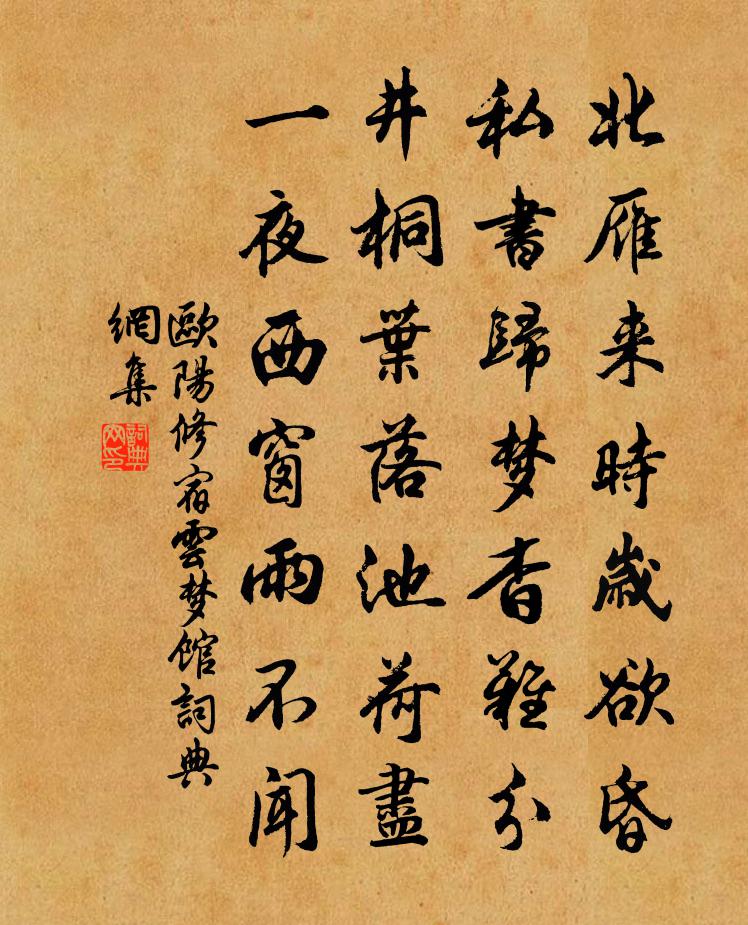 北雁来時歲欲昏
私書歸梦杳難分
井桐葉落池荷盡
一夜西窗雨不聞
歐陽修宿雲梦館詞典
網集
詞典網印